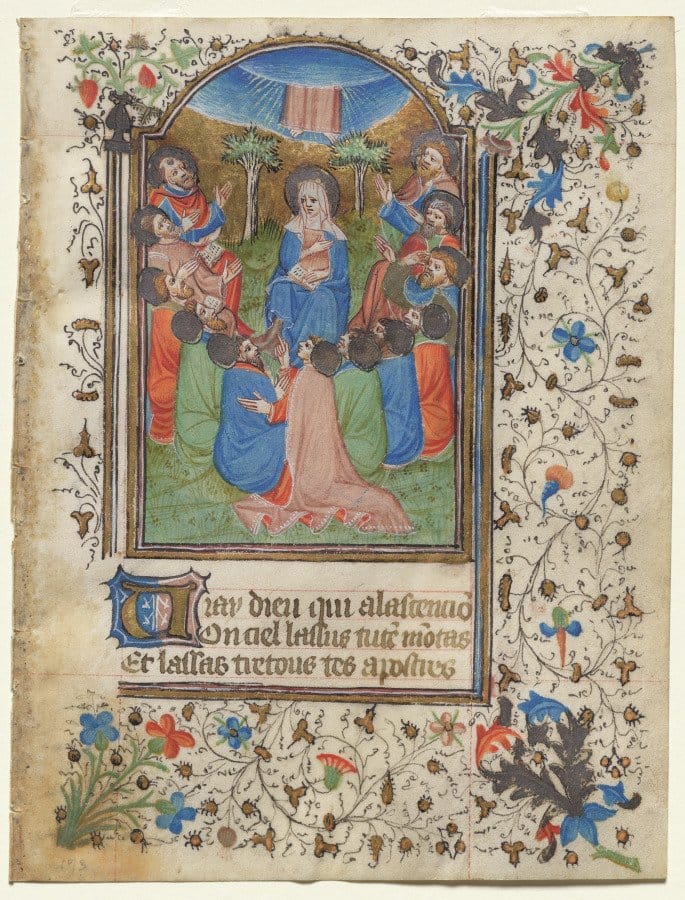 Vray dieu qui alascenciō
Ou ciel lassus tu tē mōtas
Et lassas tretous tes apostres